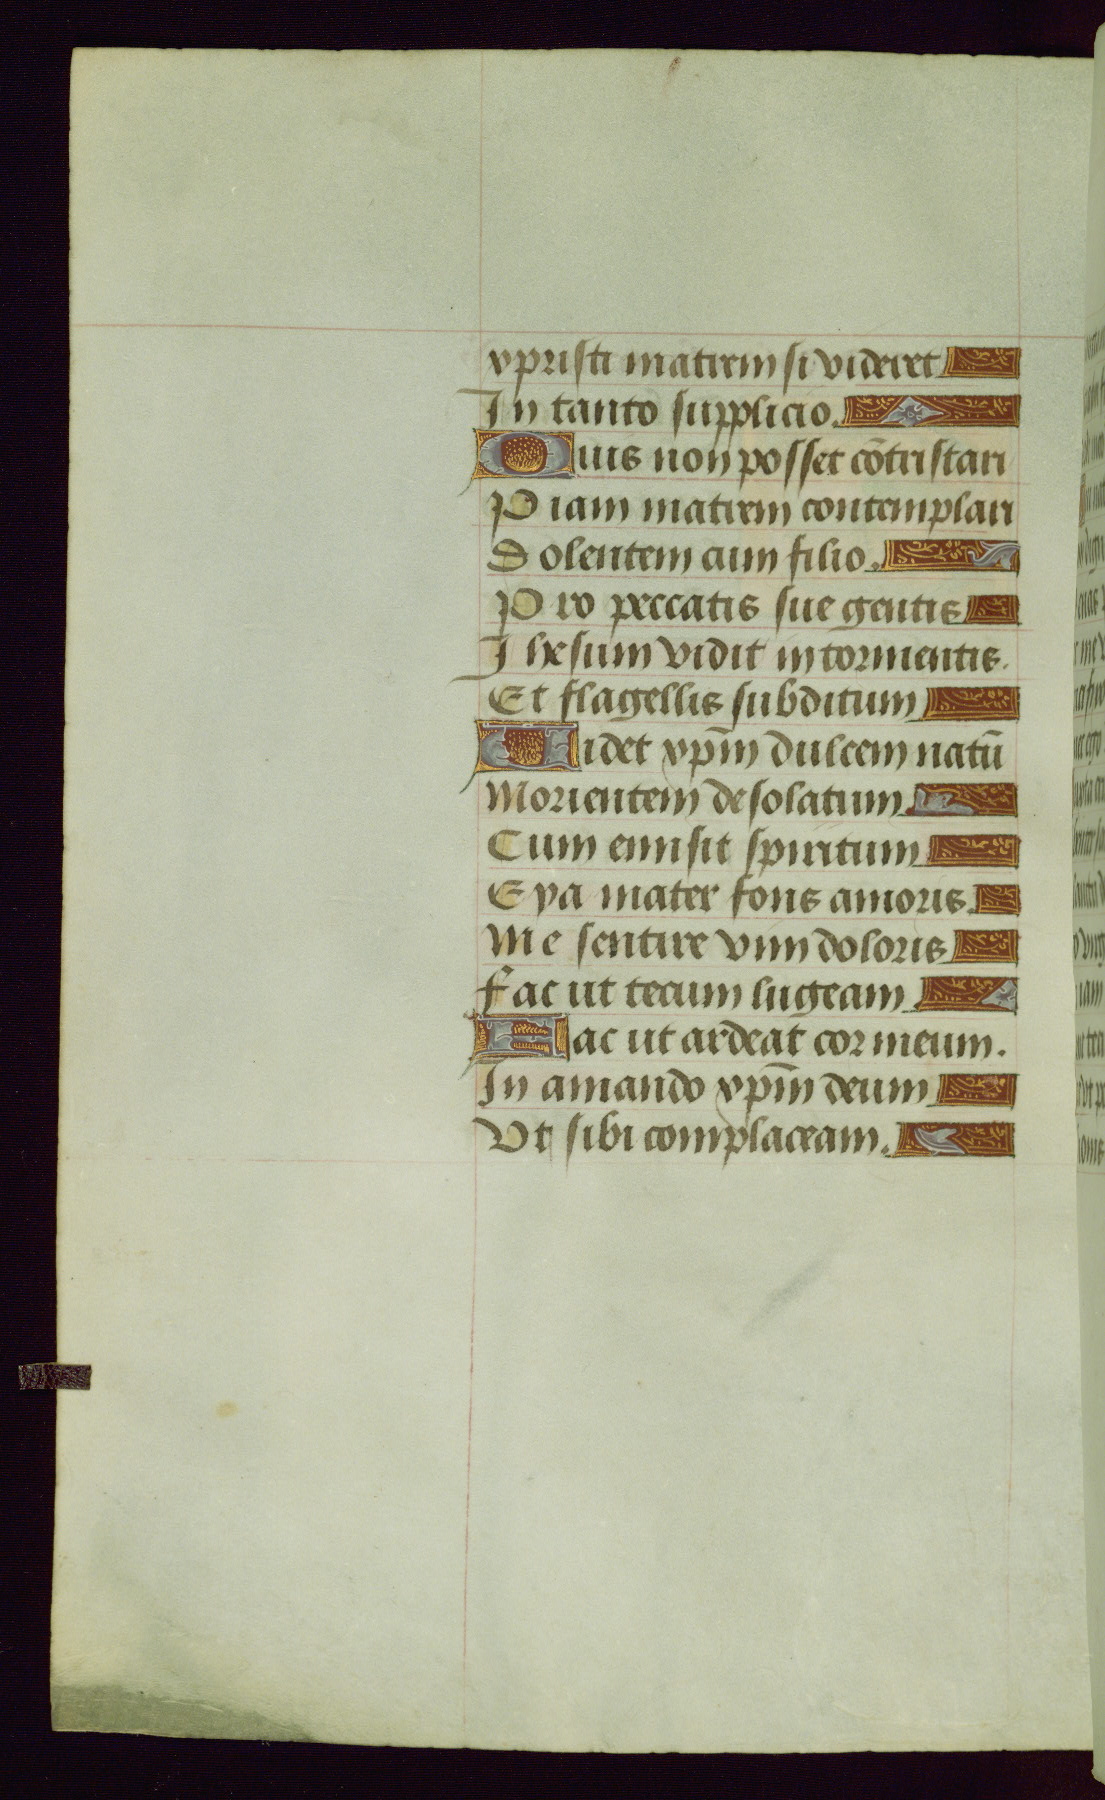 xpristi matrem si videret
In tanto supplicio.
Quis non posset cōtristari
Piam matrem contemplari
Dolentem cum filio.
Pro peccatis sue gentis
Ihesum vidit in tormentis.
Et flagellis subditum
Videt xpm̄ dulcem natū
Morientem desolatum
Cum emisit spiritum
Eya mater fons amoris.
Me sentire vim doloris
Fac ut tecum lugeam
Fac ut ardeat cor meum.
In amando xpm̄ deum
Vt sibi complaceam.